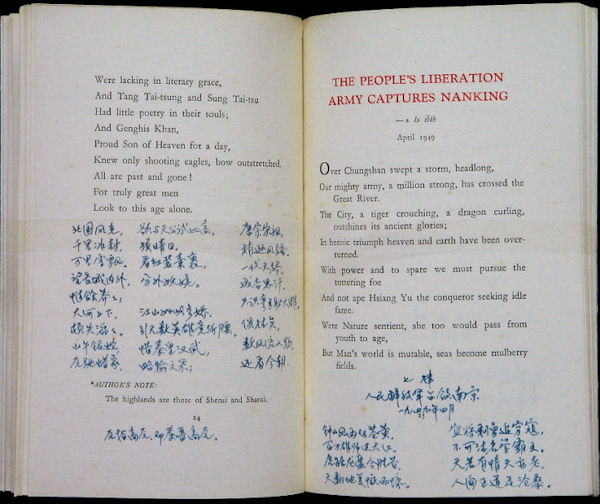 Were lacking in literary grace,
And Tang Tai-tsung and Sung Tai-tsu
Had little poetry in their souls;
And Genghis Khan,
Proud Son of Heaven for a day,
Knew only shooting eagles, bow outstretched.
All are past and gone!
For truly great men
Look to this age alone.
北国风光,
千里冰封,
万里雪飘。
望长城内外,
惟余莽莽;
大河上下,
顿失滔滔。
山午银蛇,
原驰腊象,
欲与天公试比高。
须晴日,
看红装素裹,
分外妖娆。
江山如此多娇,
引无数英雄竞折腰。
惜秦皇汉武,
略输文采;
唐宗宋祖,
稍逊风骚。
一代天骄,
成吉思汗,
只识弯弓射大雕。
俱往矣,
数风流人物,
还看今朝。
*AUTHOR'S NOTE:
The highlands are those of Shensi and Shansi.
24
原指高原,即秦晋高原。
THE PEOPLE'S LIBERATION
ARMY CAPTURES NANKING
—a lu shih
April 1949
Over Chungshan swept a storm, headlong,
Our mighty army, a million strong, has crossed the
Great River.
The City, a tiger crouching, a dragon curling,
outshines its ancient glories;
In heroic triumph heaven and earth have been over-
turned.
With power and to spare we must pursue the
tottering foe
And not ape Hsiang Yu the conqueror seeking idle
fame.
Were Nature sentient, she too would pass from
youth to age,
But Man's world is mutable, seas become mulberry
fields.
七律
人民解放军占领南京
一九四九年四月
25
钟山风雨起苍黄,
百万雄师过大江。
虎踞龙盘今胜昔,
天翻地复慨而慷。
宜将剩勇追穷寇,
不可沽名学霸王。
天若有情天亦老,
人间正道是沧桑。